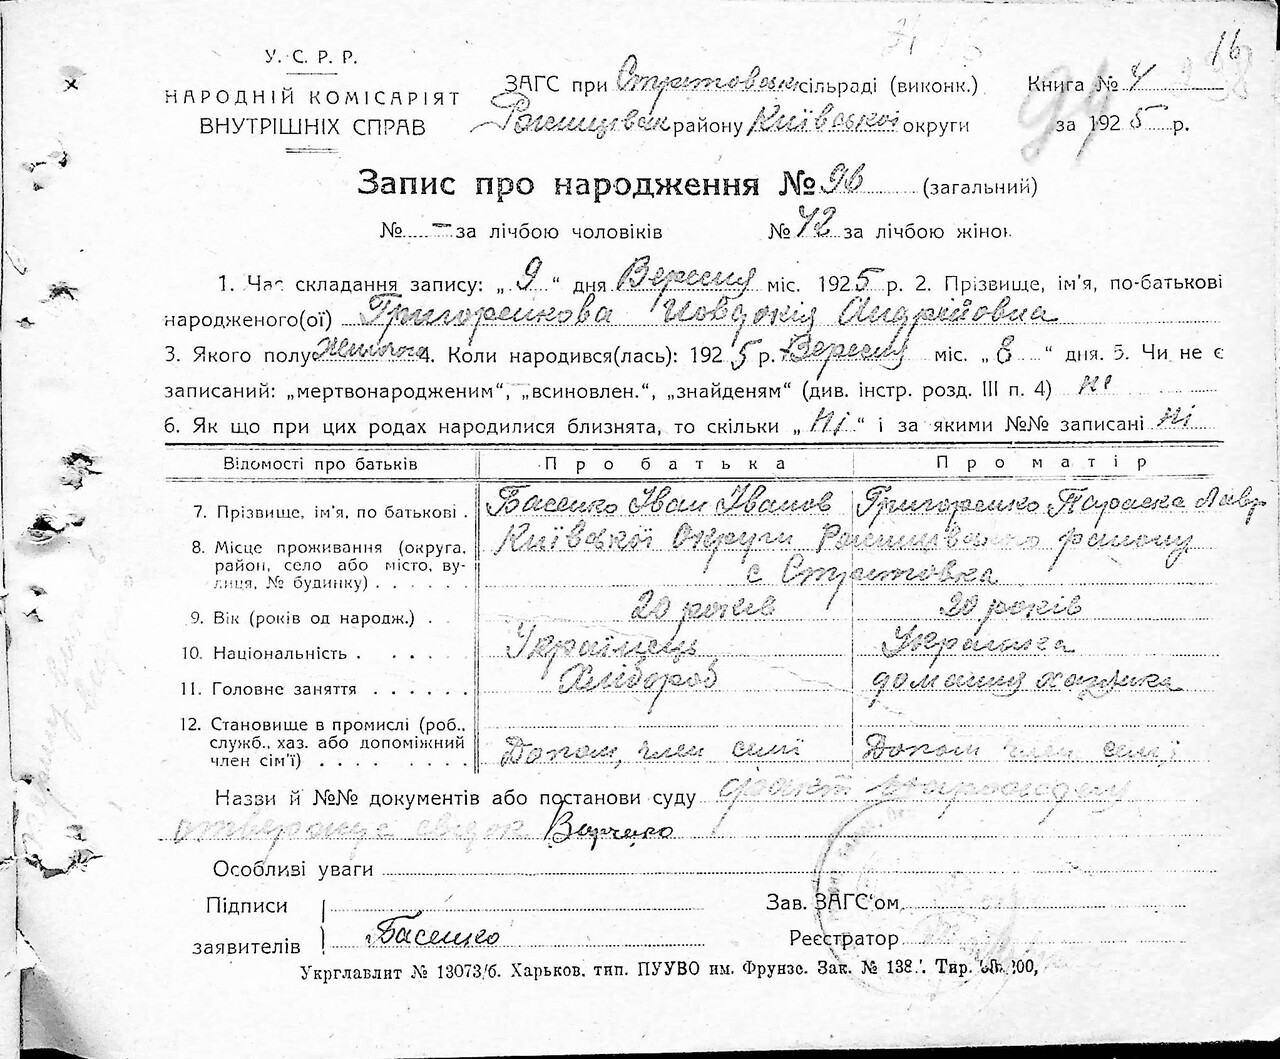 16
У. С. Р. Р.
НАРОДНІЙ КОМІСАРІЯТ
ВНУТРІШНІХ СПРАВ
ЗАГС при Стритовськ сільраді (виконк.)
району Київської округи
Книга № 4
за 1925 р.
Запис про народження № 96 (загальний)
№ – за лічбою чоловіків № 42 за лічбою жінок
1. Час складання запису: „ 9 “ дня Вересня міс. 1925 р. 2. Прізвище, ім'я, по-батькові
народженого(ої) Григоренкова Ивдокія Андрійовна
3. Якого полу Жіночого 4. Коли народився(лась): 1925 р. Вересня міс. „ 8 “ дня. 5. Чи не є
записаний: „мертвонародженим“, „всиновлен.“, „знайденям“ (див. інстр. розд. III п. 4) ні
6. Як що при цих родах народилися близнята, то скільки „ Ні “ і за якими №№ записані ні
Відомості про батьків Про батька Про матір
7. Прізвище, ім'я, по батькові . Басенко Іван Іванов Григоренко Параска Лавр
8. Місце проживання (округа, район, село або місто, вулиця, № будинку) . . . . Київської Округи району
с Стритовка
9. Вік (років од народж.) . . 20 років 20 років
10. Національність . . . . . Українець Українка
11. Головне заняття . . . . . . Хлібороб домашня хазяйка
12. Становище в промислі (роб., служб., хаз. або допоміжний член сім'ї) . . . . . . . . Допом, член семї Допом член семї
Назви й №№ документів або постанови суду факт
свідок
Особливі уваги
Підписи
заявителів Басенко
Зав. ЗАГС'ом
Реєстратор
Укрглавлит № 13073/б. Харьков, тип. ПУУВО им. Фрунзе. Зак. № 138 Тир.